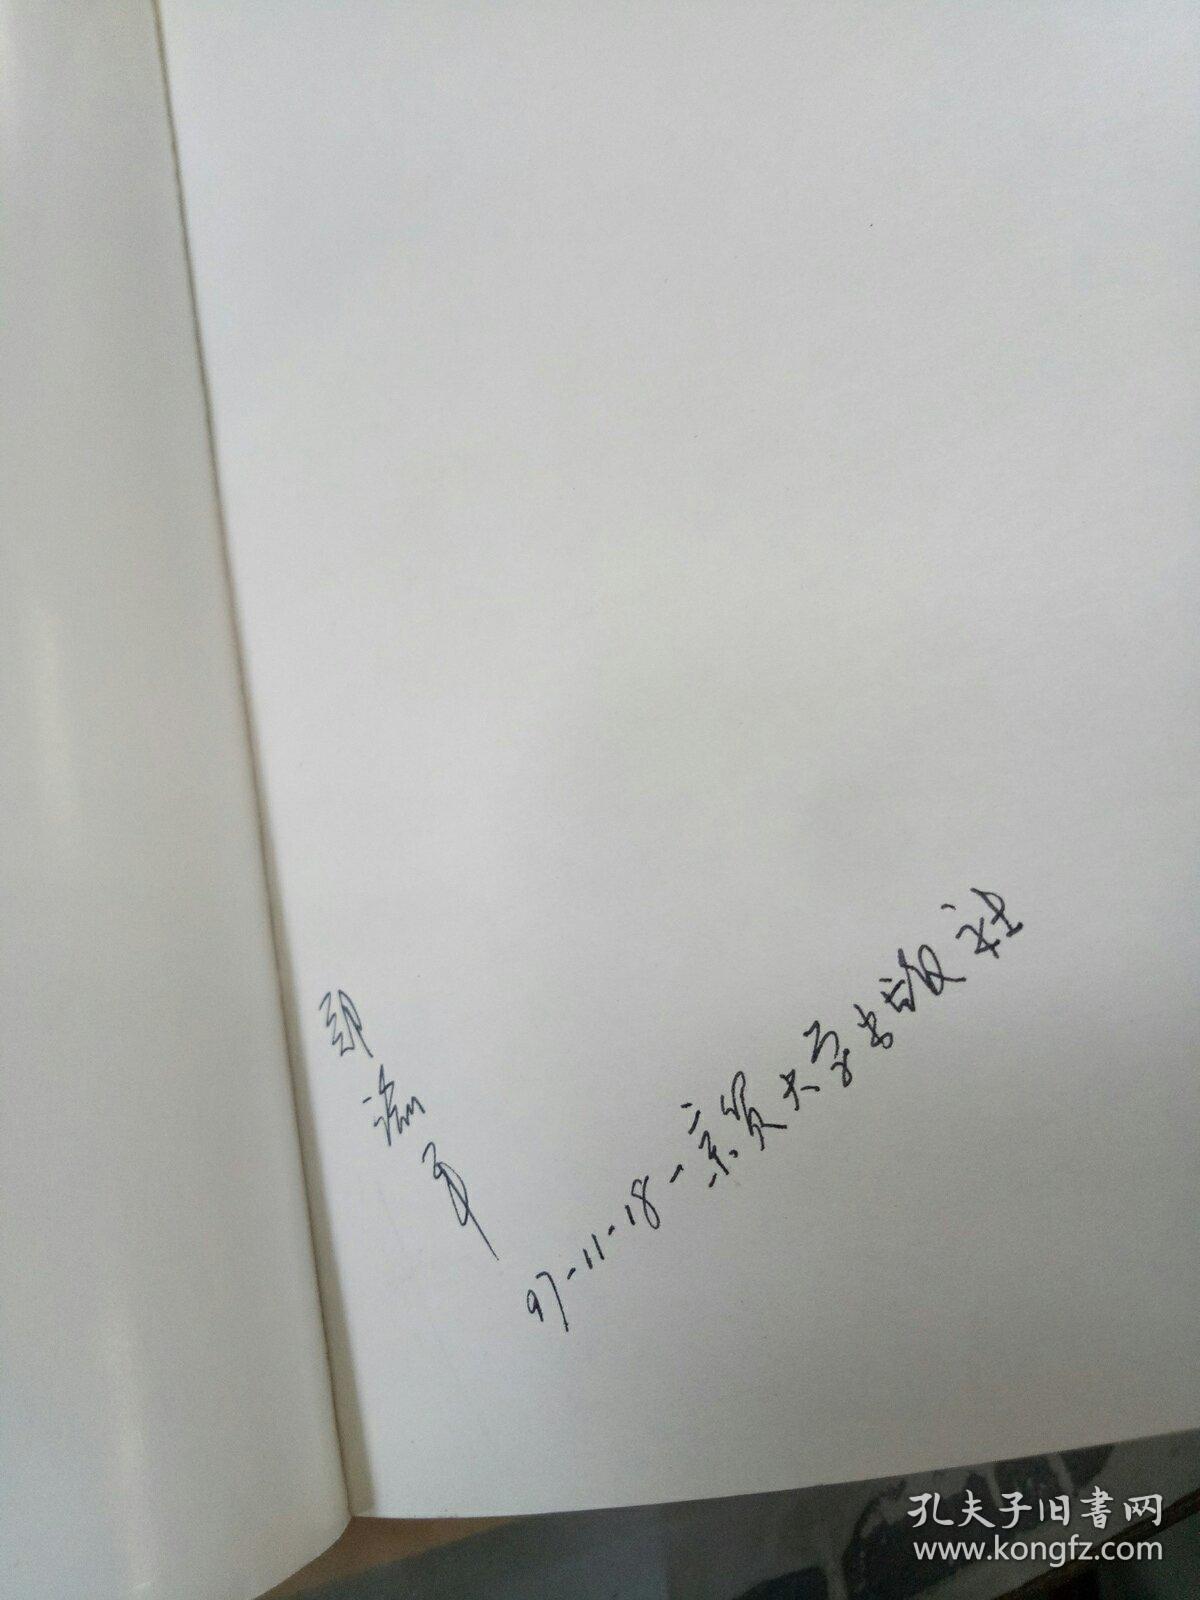 97-11-18-京贸大学出版社
孔夫子旧書网
www.kongfz.com